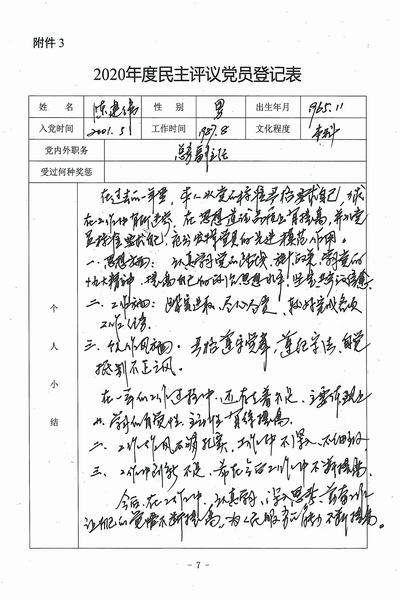 附件 3
2020年度民主评议党员登记表
姓 名 陈建伟 性 别 男 出生年月 1965.11
入党时间 2001.5 工作时间 1987.8 文化程度 本科
党内外职务 总务副主任
受过何种奖惩
个人小结
在过去的一年里，本人以党员标准严格要求自己，力求
在工作中有所进步，在思想道德品质上有提高，并以党
员标准要求自己，充分发挥党员的先进模范作用。
一、思想方面：认真学习党的
十九大精神，提高自己的政治思想水平，坚定
二、工作方面：尽心尽责，较好完成各项
工作任务。
三、个人作风方面：严格遵守党章，遵纪守法，自觉
抵制不正之风。
在一年的工作过程中，还存在着不足，主要体现在
一、学习的自觉性、主动性有待提高。
二、工作作风不够扎实，工作中不深入、不细致。
三、工作中创新不足，希在今后工作中不断提高。
今后，在工作中，认真学习，深入思考，
让自己的觉悟不断提高，为人民服务的能力不断提高。
- 7 -